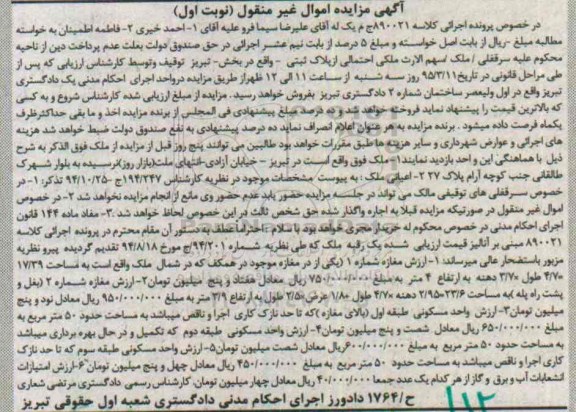 آگهی مزایده اموال غیر منقول (نوبت اول)
در خصوص پرونده اجرائی کلاسه ۸۹۰۰۲۱ج م یک له آقای علیرضا سیما فرو علیه آقای ۱- احمد خیری ۲- فاطمه اطمینان به خواسته
مطالبه مبلغ -ریال از بابت اصل خواسته و مبلغ ۵ درصد از بابت نیم عشر اجرائی در حق صندوق دولت بعلت عدم پرداخت دین از ناحیه
محکوم علیه سرقفلی / ملک /سهم الارث ملکی احتمالی ازپلاک ثبتی - واقع در بخش- تبریز توقیف وتوسط کارشناس ارزیابی که پس از
طی مراحل قانونی در تاریخ ۹۵/۳/۱۱ روز سه شنبه از ساعت ۱۱ الی ۱۲ ظهراز طریق مزایده درواحد اجرای احکام مدنی یک دادگستری
تبریز واقع در اول ولیعصر ساختمان شماره ۲ دادگستری تبریز بفروش خواهد رسید. مزایده از مبلغ ارزیابی شده کارشناس شروع و به کسی
که بالاترین قیمت را پیشنهاد نماید فروخته خواهد شد. ده درصد مبلغ پیشنهادی فی المجلس از برنده مزایده اخذ و ما بقی حداکثرظرف
یکماه فرصت داده میشود. برنده مزایده به هر عنوان اعلام انصراف نماید ده درصد پیشنهادی به نفع صندوق دولت ضبط خواهد شد هزینه
های اجرائی و عوارض شهرداری و سایر هزینه ها طبق مقررات خواهد بود طالبین می توانند پنج روز قبل از مزایده از ملک فوق الذکر به شرح
ذیل با هماهنگی این واحد بازدید نمایند:۱- ملک فوق واقع است در تبریز - خیابان آزادی-انتهای ملت(بازار روز)نرسیده به بلوار شهرک
طالقانی جنب کوچه آرام پلاک ۲۲۷-اعیانی ملک: به پیوست مشخصات موجود در نظریه کارشناس ۱۹۴۲۴۷ج-۹۴/۱۰/۲۵ تذکر: ۱- در
خصوص سرقفلی های توقیفی مالک می تواند در جلسه مزایده حضور یابد عدم حضور وی مانع از انجام مزایده نخواهد شد ۲- در خصوص
اموال غیر منقول در صورتیکه مزایده قبلا به اجاره واگذار شده حق شخص ثالث در این خصوص لحاظ خواهد شد.۳- مفاد ماده ۱۴۴ قانون
اجرای احکام مدنی در خصوص محکوم له خریدار مجری خواهد بود با سلام - احتراما عطف به دستور آن مقام محترم در پرونده اجرائی کلاسه
۸۹۰۰۲۱ مبنی بر آنالیز قیمت ارزیابی شده یک رقبه ملک که طی نظریه شماره ۹۴/۲۰۱ج مورخ ۹۴/۸/۱۸ تقدیم گردیده پیرو نظریه
مزبور باستحضار عالی میرساند ۱-ارزش مغازه شماره ۱ (یکی از در مغازه موجود در همکف که در شمال ملک واقع است به مساحت ۱۷/۳۹
=۴/۷ طول ×۳/۷ دهنه به ارتفاع ۴ متر به مبلغ ۷۵۰/۰۰۰/۰۰۰ ریال معادل هفتاد و پنج میلیون تومان۲-ارزش مغازه شماره ۲ (بغل و
پشت راه پله )به مساحت ۲۳/۶=۲/۹۵ دهنه ×۴/۷ طول ۱/۸۰ عرض×۲/۵ طول به ارتفاع ۳/۹ متر به مبلغ ۹۵۰/۰۰۰/۰۰۰ ریال معادل نود و پنج
میلیون تومان۳-ارزش واحد مسکونی طبقه اول (بالای مغازه )که تا حد نازک کاری اجرا و ناقص میباشد به مساحت حدود ۵۰ متر مربع به
مبلغ ۶۵۰/۰۰۰/۰۰۰ ریال معادل شصت و پنج میلیون تومان۴-ارزش واحد مسکونی طبقه دوم که تکمیل و در حال بهره برداری میباشد
به مساحت حدود ۵۰ متر مربع به مبلغ ۶۰۰/۰۰۰/۰۰۰ریال معادل شصت میلیون تومان۵-ارزش واحد مسکونی طبقه سوم که تا حد نازک
کاری اجرا و ناقص میباشد به مساحت حدود ۵۰ متر مربع به مبلغ ۴۵۰/۰۰۰/۰۰۰ ریال معادل چهل و پنج میلیون تومان ۶-ارزش امتیازات
انشعابات آب و برق و گاز از هر کدام یک عدد جمعا ۴۰/۰۰۰/۰۰۰ ریال معادل چهار میلیون تومان. کارشناس رسمی دادگستری مرتضی شعاری
ح/۱۷۶۴ دادورز اجرای احکام مدنی دادگستری شعبه اول حقوقی تبریز